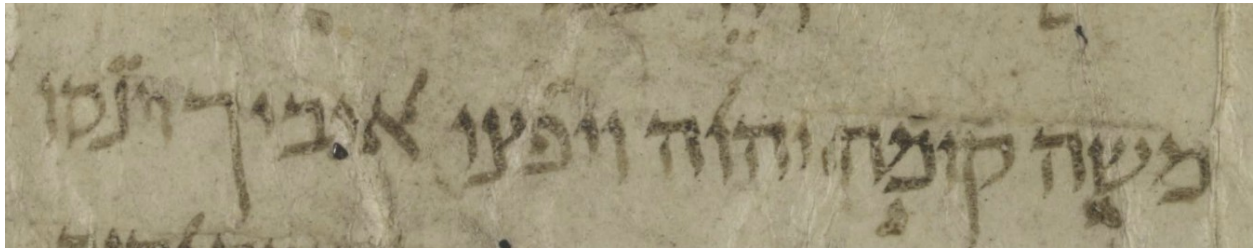 משה קומה יהוה ויפצו איביך וינסו